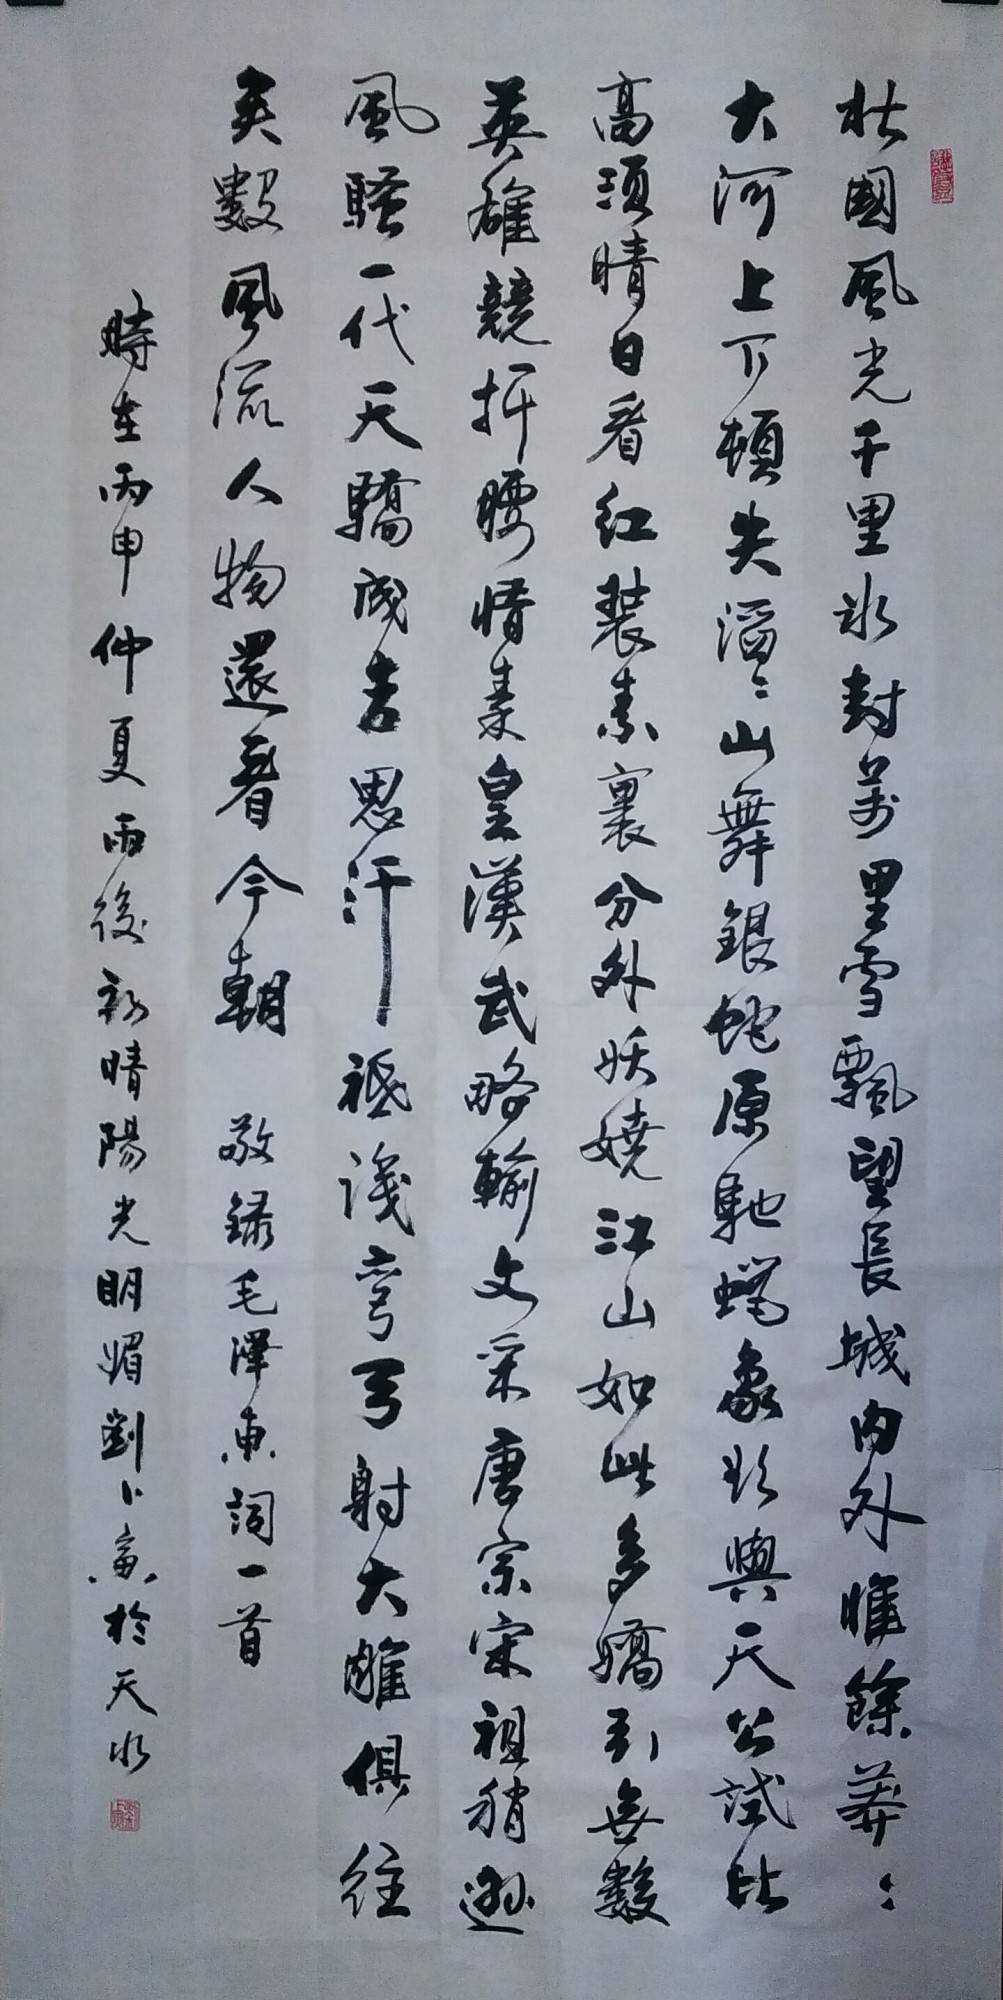 北國風光千里冰封萬里雪飄望長城內外惟餘莽〻
大河上下頓失滔〻山舞銀蛇原馳蠟象欲與天公試比
高須晴日看紅裝素裹分外妖嬈江山如此多嬌引無數
英雄競折腰惜秦皇漢武略輸文采唐宗宋祖稍遜
風騷一代天驕成吉思汗祗識彎弓射大雕俱往
矣數風流人物還看今朝 敬錄毛澤東詞一首
時在丙申仲夏雨後初晴陽光明媚劉卜於天水